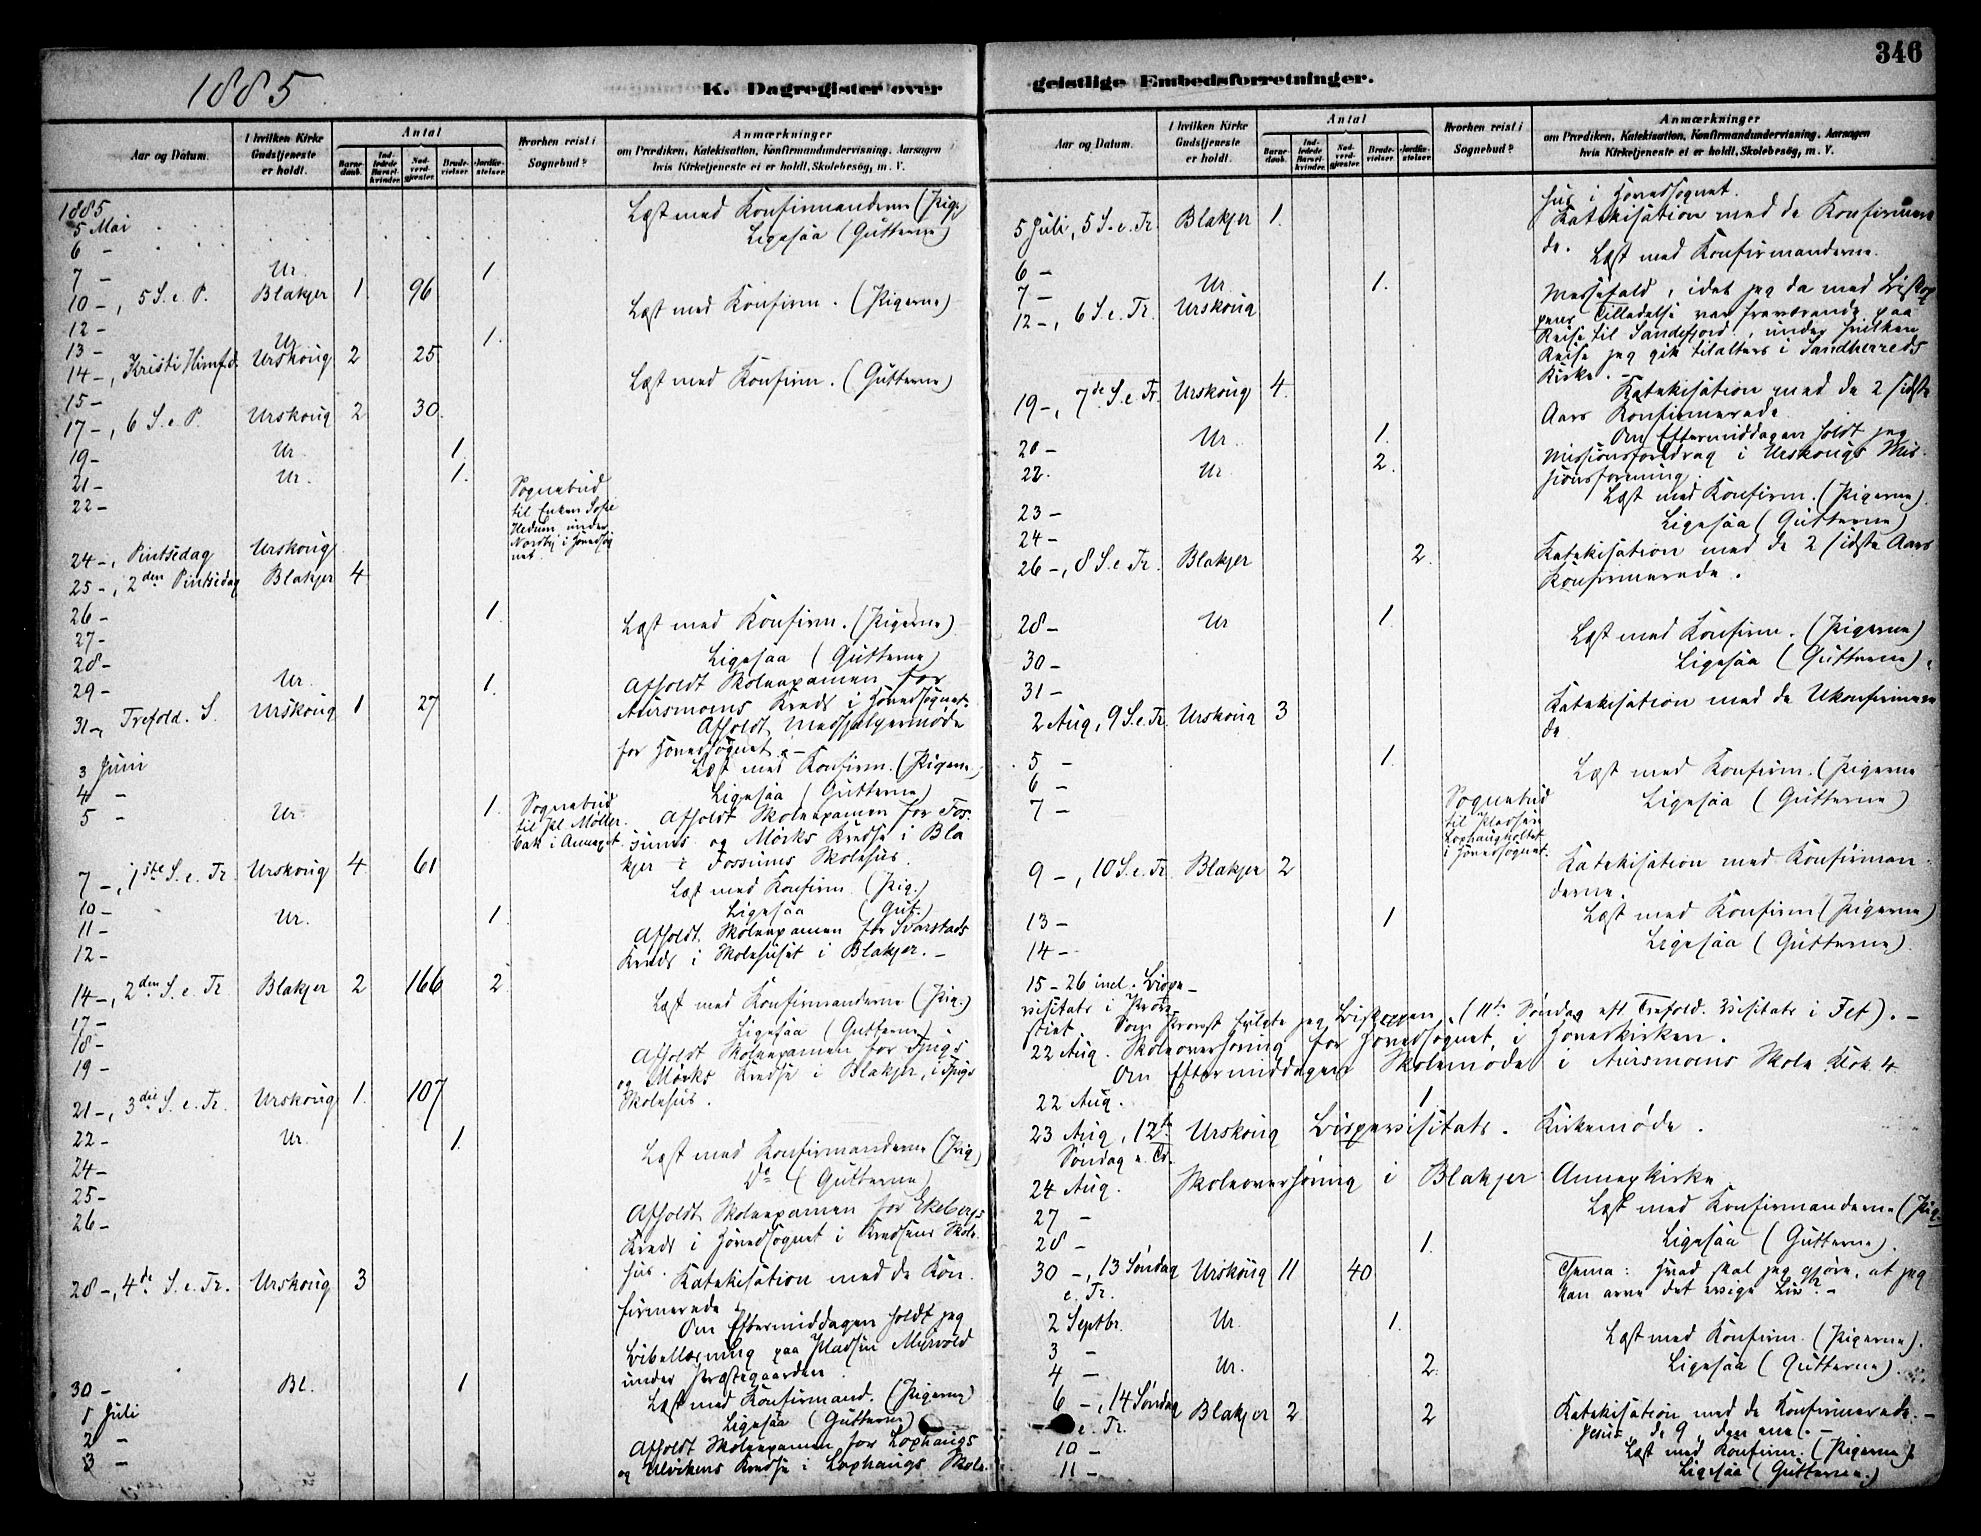 1885
K. Dagregister over
Aar og Datum. I hvilken Kirke Gudstjeneste er holdt. Antal Barnedaab. Indledede Barselkvinder. Nadverdgjæster. Brudevielser. Jordfæstelser. Hvorhen reist i Sognebud? Anmærkninger om Prædiken, Katekisation, Konfirmandundervisning, Aarsagen hvis Kirketjeneste ei er holdt, Skolebesøg, m. V.
1885
5 Mai Læst med Konfirmanderne (Pig.)
6 – Ligesaa (Gutterne)
7 – Ur. 1
10 –, 5 S. e. P. Blakjer 1. 96
12 – Læst med Konfirm. (Pigerne)
13 – Ur. 1.
14 –, Kristi Himf.d. Urskoug 2 25
15 – Læst med Konfirm. (Gutterne)
17 –, 6 S. e. P. Urskoug 2 30.
19 – Ur. 1.
21 – Ur. 1.
22 – Sognebud
til Enken Sofie
Hedum under
Nordby i Hovedsog
net.
24 –, Pintsedag Urskoug
25 –, 2den Pintsedag Blakjer 4
26 – 1.
27 – Læst med Konfirm. (Pigerne)
28 – Ligesaa (Gutterne)
29 – Ur. 1. Afholdt Skoleexamen for
Aursmoens Kreds i Hovedsognet.
31 –, Trefold. S. Urskoug 1 27 Afholdt Medhjælpermøde
for Hovedsognet. –
3 Juni Læst med Konfirm. (Pigerne)
4 – Ligesaa (Gutterne)
5 – Ur. 1. Sognebud
til Pl. Møller
bak i Annexet. Afholdt Skoleexamen for Fos
sums og Mørks Kredse i Bla
kjer i Fossums Skolehus.
7 –, 1ste S. e. Tr. Urskoug 4. 61
10 – Læst med Konfirm. (Pig.)
11 – Ur. 1. Ligesaa (Gut.)
12 – Afholdt Skoleexamen for Svarstads
Kreds i Skolehuset i Blakjer. –
14 –, 2den S. e. Tr. Blakjer 2 166 2.
17 – Læst med Konfirmanderne (Pig.)
18 – Ligesaa (Gutterne)
19 – Afholdt Skoleexamen for
og Mørks Kredse i Blakjer, i
Skolehus.
21 –, 3die S. e. Tr. Urskoug 1. 107
22 – Ur. 1.
24 – Læst med Konfirmanderne (Pig.)
25 – Do (Gutterne)
26 – Afholdt Skoleexamen for Ekebergs
Kreds i Hovedsognet i Kredsens Skole
hus.
28 –, 4de S. e. Tr. Urskoug 3 Katekisation med de Kon
firmerede.
Om Eftermiddagen holdt jeg
Bibellæsning paa Pladsen Myrvold
under Præstegaarden.
30 – Bl. 1
1 Juli Læst med Konfirmand. (Pigerne)
2 – Ligesaa (Gutterne)
3 – Afholdt Skoleexamen for Lophaugs
og Ulvikens Kredse i Lophaugs Skole
346
geistlige Embedsforretninger.
Aar og Datum. I hvilken Kirke Gudstjeneste er holdt. Antal Barnedaab. Indledede Barselkvinder. Nadverdgjæster. Brudevielser. Jordfæstelser. Hvorhen reist i Sognebud? Anmærkninger om Prædiken, Katekisation, Konfirmandundervisning, Aarsagen hvis Kirketjeneste ei er holdt, Skolebesøg, m. V.
hus i Hovedsognet.
5 Juli, 5 S. e. Tr. Blakjer 1. Katekisation med de Konfirmere
de.
6 – Læst med Konfirmanderne.
7 – Ur. 1.
12 –, 6 S. e. Tr. Urskoug Messefald, idet jeg da med Bisko
pens Tilladelse var fraværende paa
Reise til Sandefjord, under hvilken
Reise jeg gik tilalters i Sandherreds
Kirke. –
19 –, 7de S. e. Tr. Urskoug 4. Katekisation med de 2 sidste
Aars Konfirmerede.
Om Eftermiddagen holdt jeg
Missionsforedrag i Urskougs Mis
sionsforening.
20 – Ur. 1.
22. Ur 2.
23 – Læst med Konfirm. (Pigerne)
24 – Ligesaa (Gutterne)
26 –, 8 S. e. Tr. Blakjer 2. Katekisation med de 2 sidste Aars
Konfirmerede.
28 – Ur 1.
30 – Læst med Konfirm. (Pigerne)
31 – Ligesaa (Gutterne).
2 Aug, 9 S. e. Tr. Urskoug 3 Katekisation med de Ukonfirmere
de
5 – 1.
6 – Læst med Konfirm. (Pigerne
7 – Sognebud
til Pladsen
Lophaugholtet
i Hovedsognet. Ligesaa (Gutterne)
9 –, 10 S. e. Tr. Blakjer 2 Katekisation med Konfirman
derne.
13 – 1 Læst med Konfirm (Pigerne)
14 – Ligesaa (Gutterne).
15 – 26 incl. Bispe
visitats i Prov
stiet. Som Provst fulgte jeg Biskoppen. (11te Søndag eft Trefold. Visitats i Fet). –
22 Aug. Skoleoverhøring for Hovedsognet, i Hovedkirken.
Om Eftermiddagen Skolemøde i Aursmoens Skole Klok. 4.
22 Aug. 1.
23 Aug, 12te
Søndag e. Tr. Urskoug Bispevisitats. Kirkemøde.
24 Aug. Skoleoverhøring i Blakjer Annexkirke
27 – Læst med Konfirmanderne (Pig.
28 – 1. Ligesaa (Gutterne).
30 –, 13 Søndag
e. Tr. Urskoug 11 40 Thema: Hvad skal jeg gjøre, at jeg
kan arve det evige Liv? –
2 Septbr. Ur. 1.
3 – Læst med Konfirm. (Pigerne).
4 – Ur. 2. Ligesaa (Gutterne).
6 –, 14 Søndag
e. Tr. Blakjer 2 2 Katekisation med de Konfirmerede. –
Jesus de 9,
10 – Læst med Konfirm. (Pigerne).
11 – Ligesaa (Gutterne.)